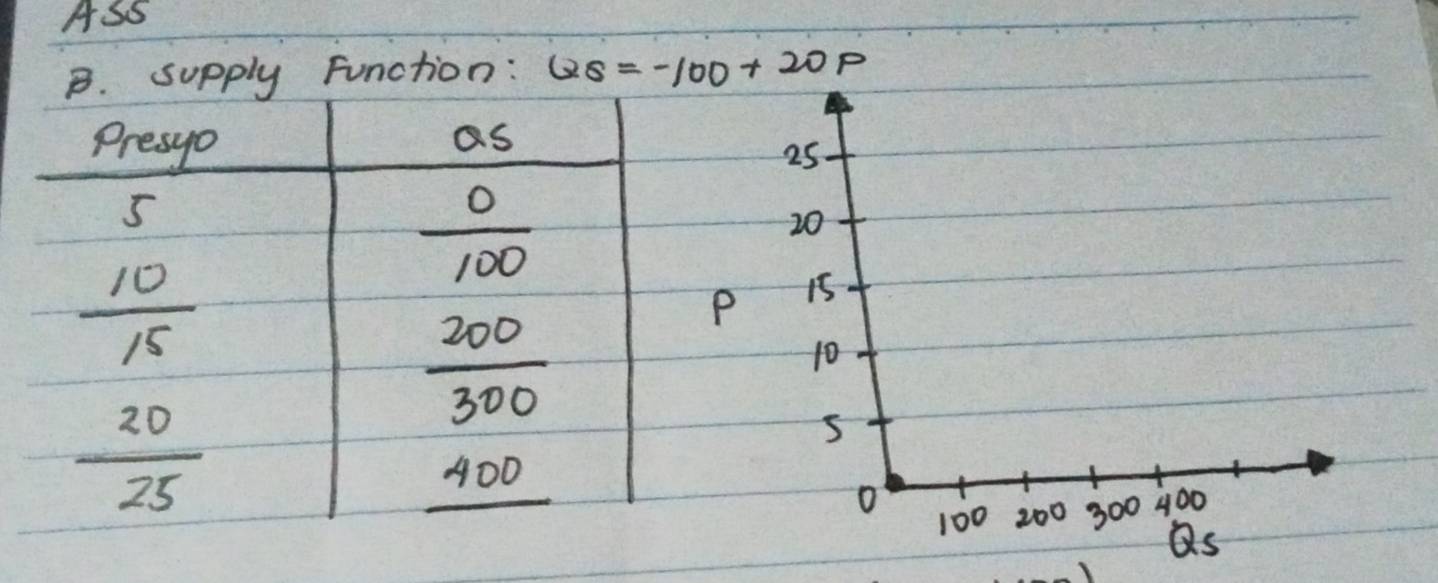 ASS
B. Supply Function: Qs = -100 + 20P
Presyo Qs
5 0
10 100
15 200
20 300
25 400
25
20
P 15
10
5
0 100 200 300 400
Qs